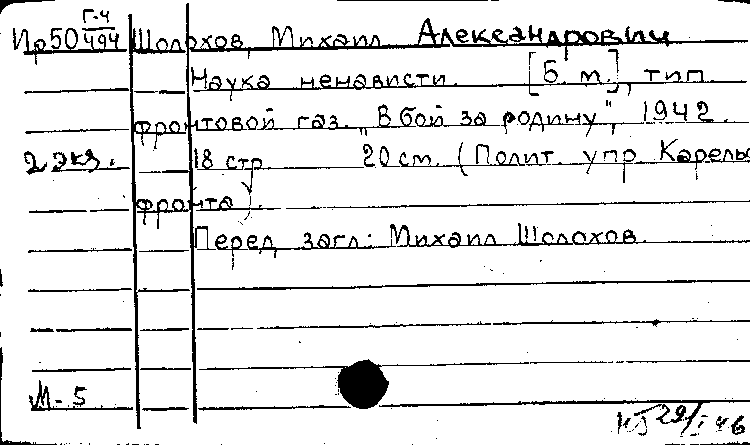 Г-4
Ир50 494 Шолохов, Михаил Александрович
Наука ненависти. [Б. м.], тип.
фронтовой газ. „В бой за родину", 1942.
2 экз. 18 стр. 20 см. (Полит. упр. Карельс
фронта).
Перед загл.: Михаил Шолохов.
М-5
29/I 46